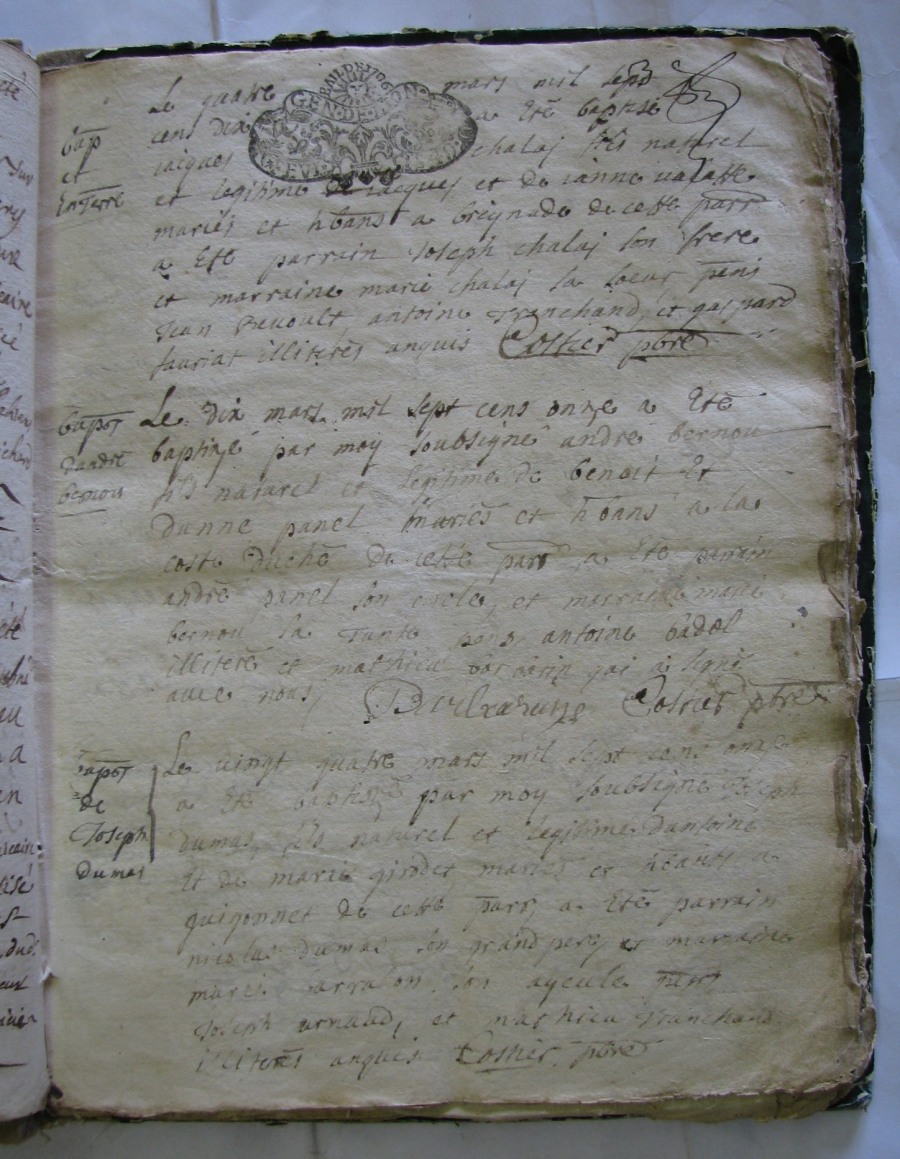 Le quatre mars mil sept
cens dix a Eté baptisé
iacques chalaj fils naturel
et legitime de iacques et de ianne valette
mariés et hbans a breignade de cette parr
a Eté parrain Joseph chalaj son frere
et marraine marie chalaj sa soeur pens
Jean antoine Trenchand, et gaspard
sauriat illiterés anquis Costier pbre
bap
et
EnTerre
GEN·DE·
Le dix mars mil sept cens onze a Eté
baptizé par moy soubsigné andré bernou
fils naturel et legitime de benoit Et
danne panel mariés et hbans a la
coste duché de cette parr a Eté parrain
andré panel son oncle, et marraine marie
bernou sa Tante pens antoine badol
illiteré et mathieu qui a signé
avec nous, Costier pbre
bapt
dandré
bernou
Le vingt quatre mars mil sept cens onze
a Eté baptizé par moy soubsigné Joseph
dumas, fils naturel et legitime dantoine
Et de marie girodet mariés et hbans a
guigonnet de cette parr, a Eté parrain
nicolas dumas son grand pere, et marraine
marie son ayeule pens
Joseph arnaud, et mathieu Tranchand
illiterés anquis Costier pbre
bapt
de
Joseph
dumas